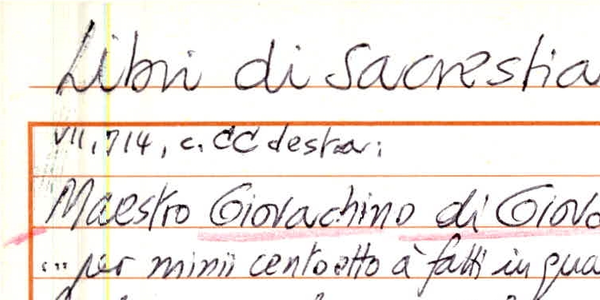 Libri di Sacrestia
VII, 714, c. CC destra:
Maestro Giovachino di Giova
... per minii centootto à fatti in qua